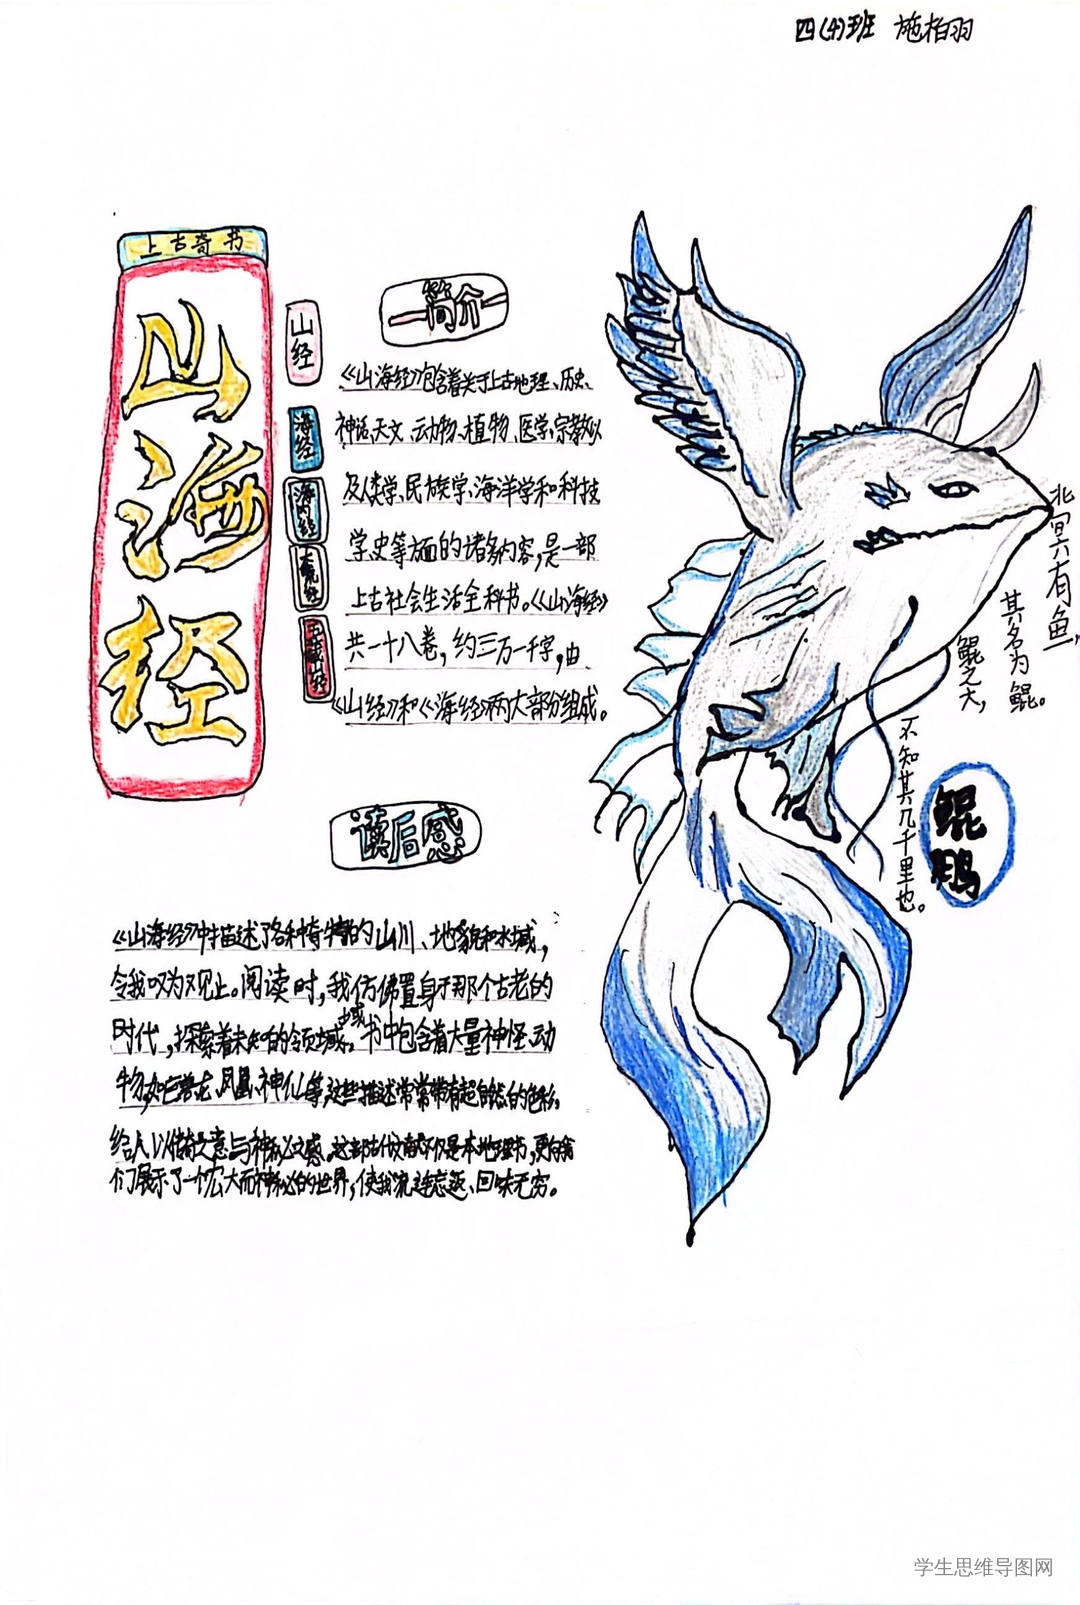 四(4)班 施柏羽
上古奇书
山海经
山经
海经
海内经
大荒经
五藏山经
简介
《山海经》包含着关于上古地理、历史、
神话、天文、动物、植物、医学、宗教以
及人类学、民族学、海洋学和科技
学史等方面的诸多内容,是一部
上古社会生活全科书。《山海经》
共一十八卷,约三万一千字,由
《山经》和《海经》两大部分组成。
北冥有鱼,
其名为鲲。
鲲之大,
不知其几千里也。
鲲鹏
读后感
《山海经》中描述了各种奇特的山川、地貌和水域,
令我叹为观止。阅读时,我仿佛置身于那个古老的
时代,探索着未知的领域。书中包含着大量神怪、动
物,如龙、凤凰、神仙等,这些描述常常带有超自然的色彩,
给人以传奇之意与神秘之感。这部古代文献不仅是本地理书,更向我
们展示了一个宏大而神秘的世界,使我流连忘返、回味无穷。
学生思维导图网